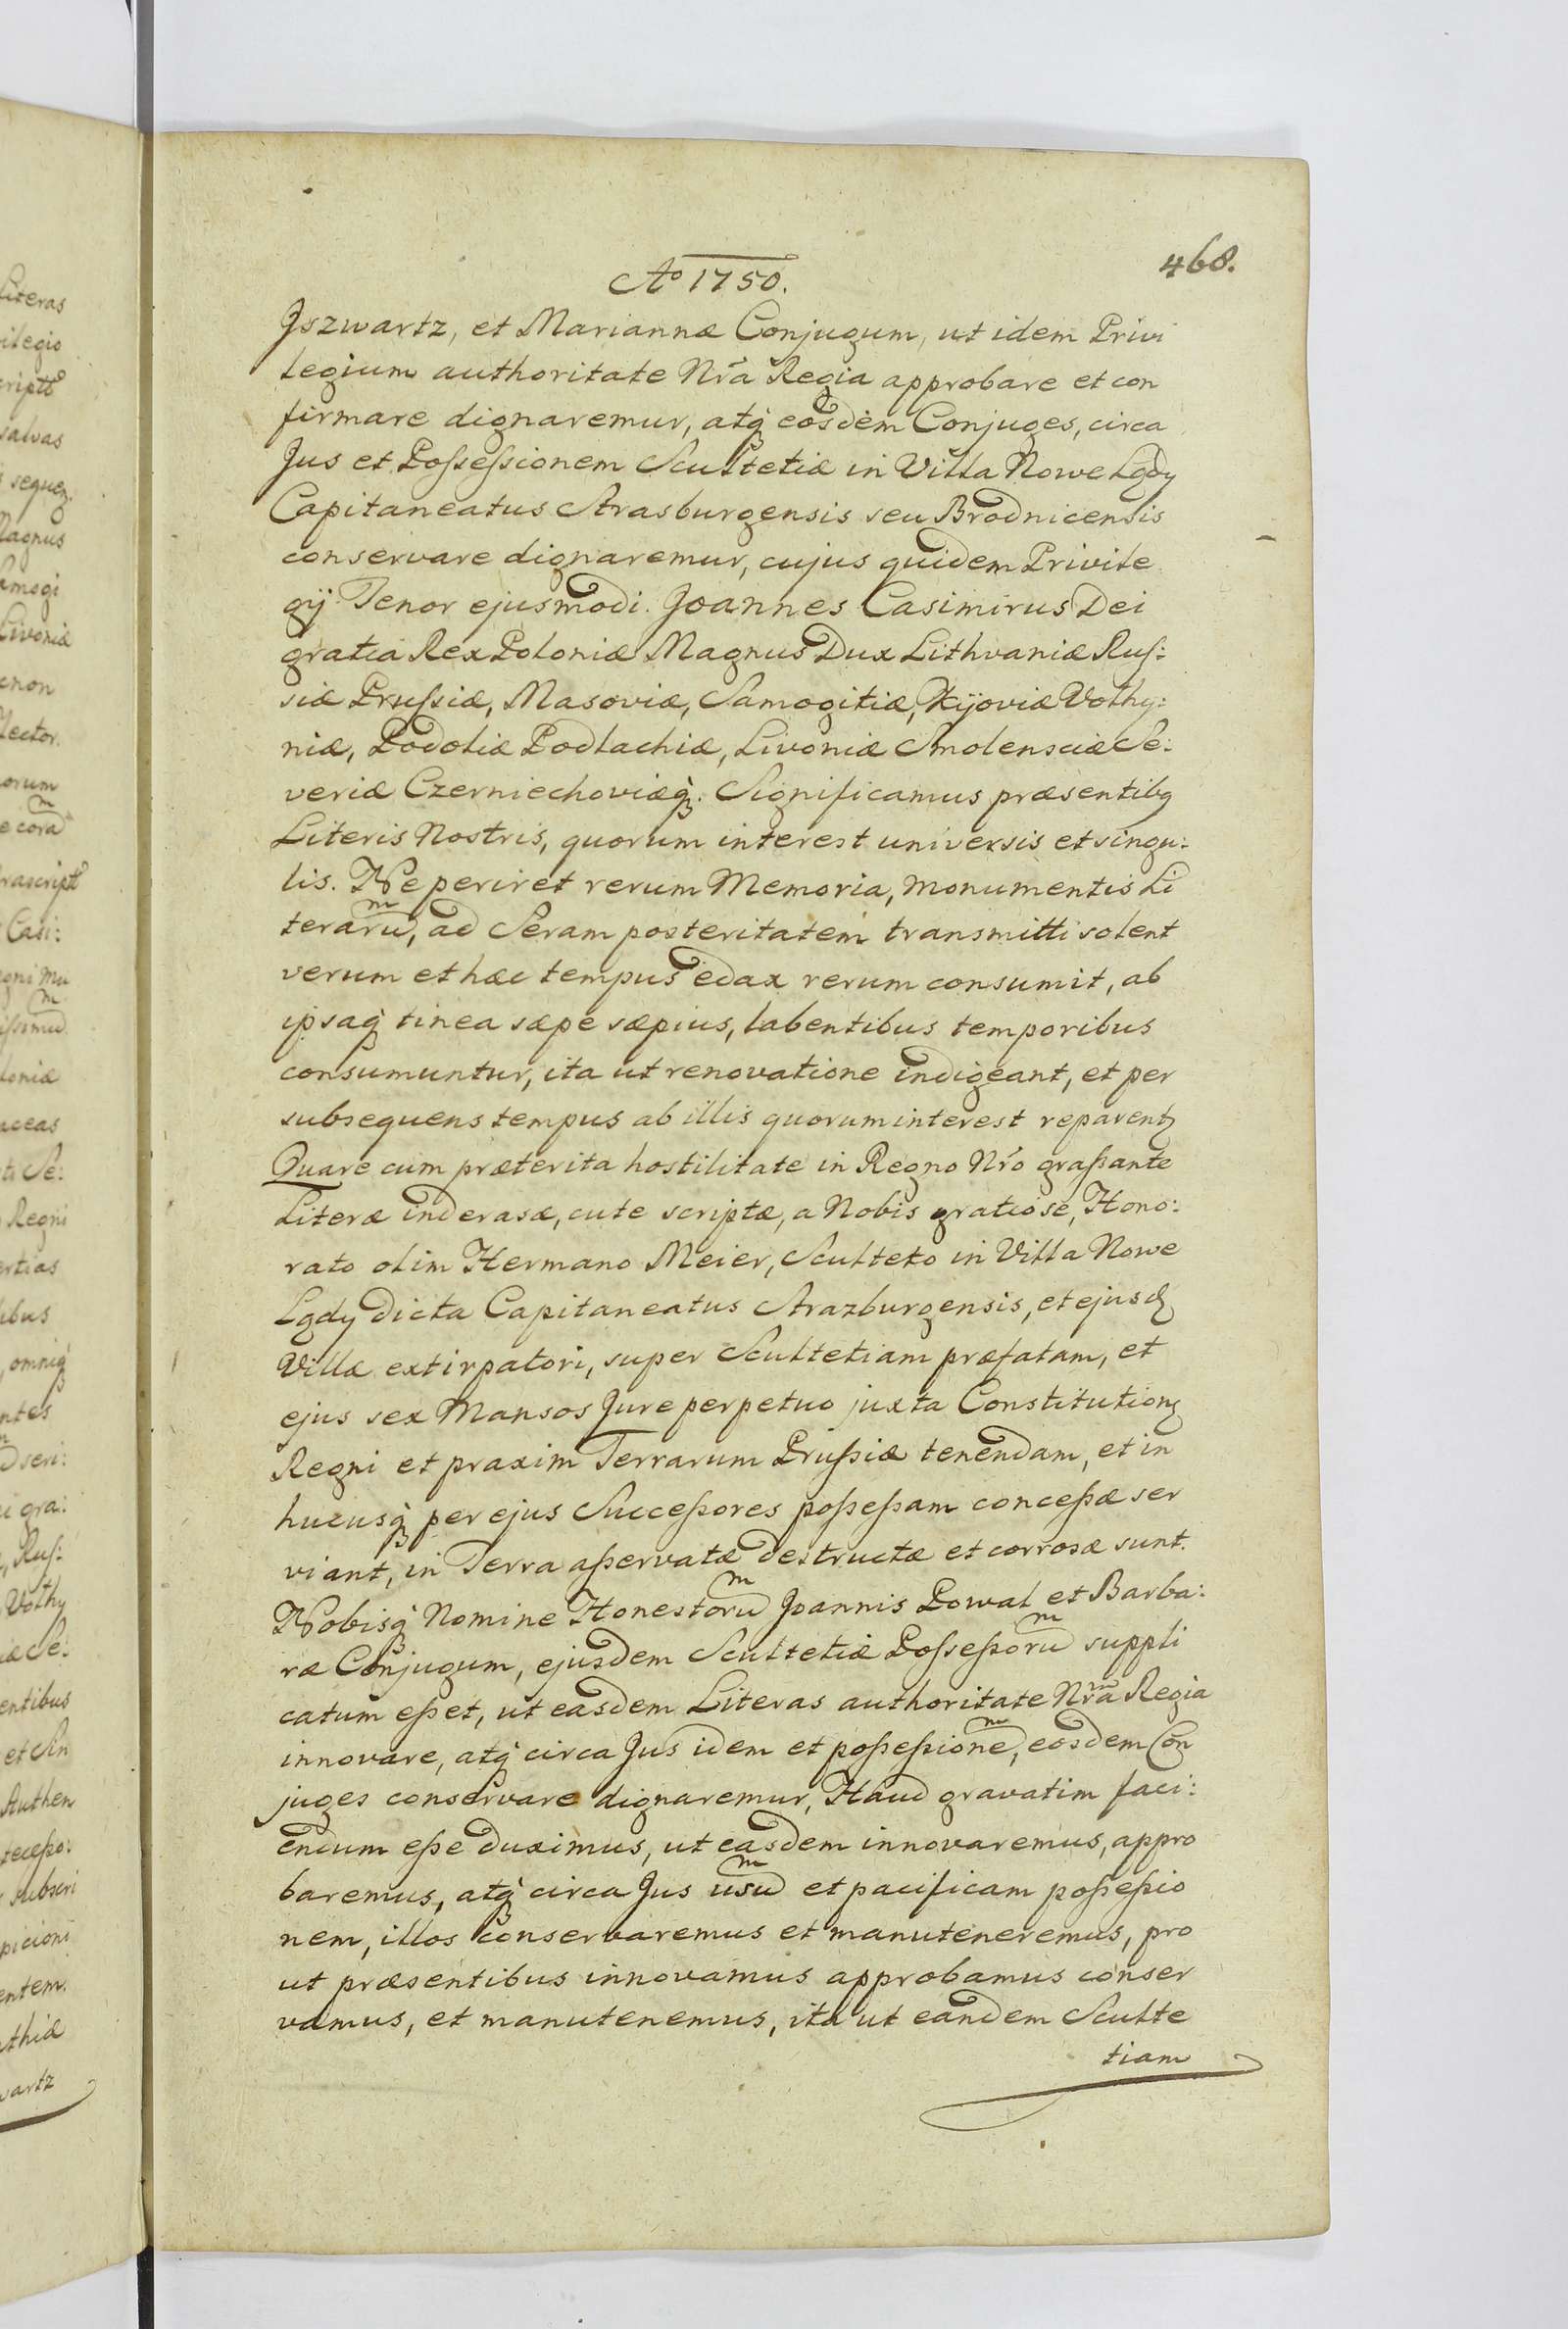 468.
Ao 1750.
Jszwartz, et Mariannæ Conjugum, ut idem Privi
legium authoritate Nrã Regia approbare et con
firmare dignaremur, atq̀ eosdem Conjuges, circa
Jus et Poſseſsionem Scultetiæ in Villa Nowe Lądy
Capitaneatus Strasburgensis seu Brodnicensis
conservare dignaremur, cujus quidem Privile
gij Tenor ejusmodi. Joannes Casimirus Dei
gratia Rex Poloniæ Magnus Dux Lithvaniæ Ruſ:
siæ Pruſsiæ, Masoviæ, Samogitiæ, Kijoviæ Volhy:
niæ, Podoliæ Podlachiæ, Livoniæ Smolensciæ Se:
veriæ Czerniechoviæq̀. Significamus præsentibq
Literis Nostris, quorum interest universis et singu:
lis. Ne periret rerum Memoria, monumentis Li
terarum̃, ad Seram posteritatem transmitti solent
verum et hæc tempus edax rerum consumit, ab
ipsaq̀ tinea sæpe sæpius, labentibus temporibus
consumuntur, ita ut renovatione indigeant, et per
subsequens tempus ab illis quorum interest reparentɀ
Quare cum præterita hostilitate in Regno Nrõ graſsante
Literæ inderasæ, cute scriptæ, a Nobis gratiose, Hono:
rato olim Hermano Meier, Sculteto in Villa Nowe
Lądy dicta Capitaneatus Strazburgensis, et ejusdɀ
Villæ extirpatori, super Scultetiam præfatam, et
ejus sex Mansos Jure perpetuo juxta Constitutionɀ
Regni et praxim Terrarum Pruſsiæ tenendam, et in
hucusq̀ per ejus Succeſsores poſseſsam conceſsæ ser
viant, in Terra aſservatæ destructæ et corrosæ sunt.
Nobisq̀ Nomine Honestorũ Joannis Powal et Barba:
ræ Conjugum, ejusdem Scultetiæ Poſseſsorũ suppli
catum eſset, ut easdem Literas authoritate Nrã Regia
innovare, atq̀ circa Jus idem et poſseſsionẽ, eosdem Con
juges conservare dignaremur, Haud gravatim faci:
endum eſse duximus, ut easdem innovaremus, appro
baremus, atq̀ circa Jus usũ et pacificam poſseſsio
nem, illos conservaremus et manuteneremus, pro
ut præsentibus innovamus approbamus conser
vamus, et manutenemus, ita ut eandem Sculte
tiam